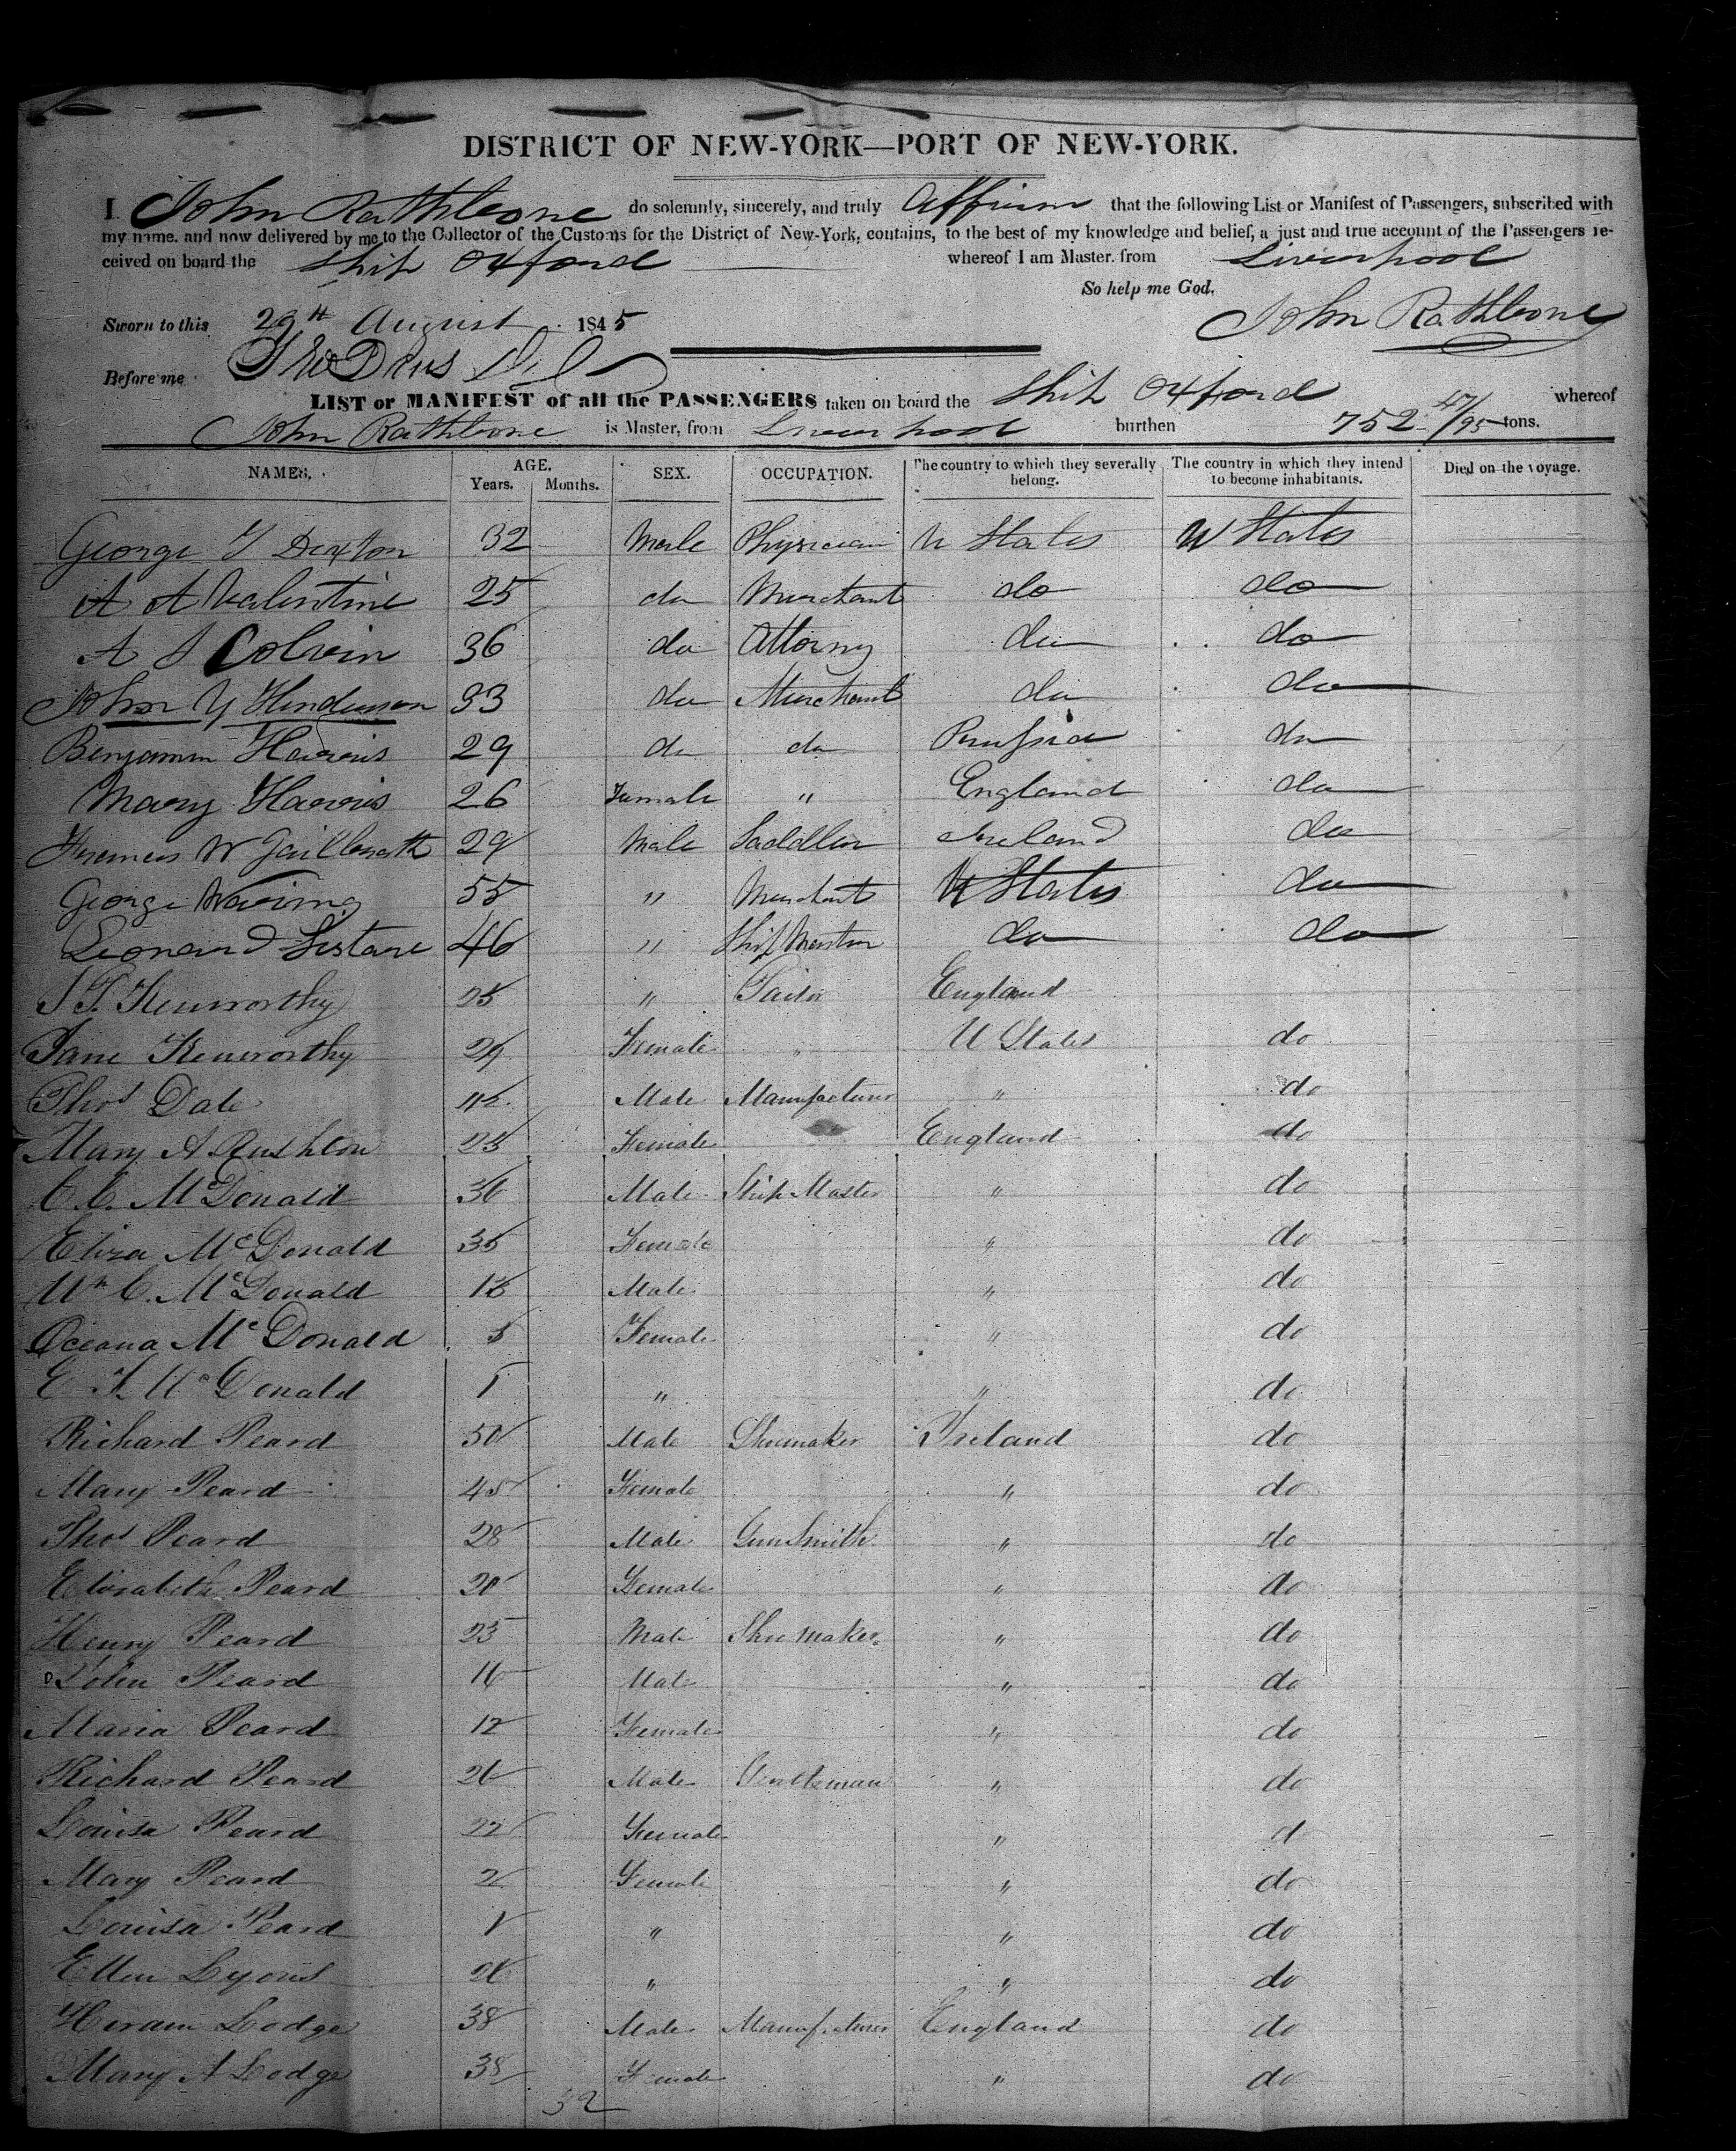 DISTRICT OF NEW-YORK—PORT OF NEW-YORK.
I John Rathbone do solemnly, sincerely, and truly Affirm that the following List or Manifest of Passengers, subscribed with
my name, and now delivered by me to the Collector of the Customs for the District of New-York, contains, to the best of my knowledge and belief, a just and true account of the Passengers re-
ceived on board the Ship Oxford whereof I am Master, from Liverpool
So help me God.
Sworn to this 29th August 1845 John Rathbone
Before me
LIST or MANIFEST of all the PASSENGERS taken on board the Ship Oxford whereof
John Rathbone is Master, from Liverpool burthen 752 47/95 tons.
NAMES. AGE. Years. Months. SEX. OCCUPATION. The country to which they severally belong. The country in which they intend to become inhabitants. Died on the voyage.
George T Dexton 32 Male Physician U States U States
A A Valentine 25 do Merchant do do
A S Colvin 36 do Attorny do do
John Y Henderson 33 do Merchant do do
Benjamin Harris 29 do do Prussia do
Mary Harris 26 Female " England do
W 29 Male Saddler Ireland do
George Waring 55 " Merchant U States do
Leonard 46 " Ship Master do do
Kenworthy 25 " Tailor England
Jane Kenworthy 29 Female " U States do
Thos Dale Male Manufacturer " do
Mary A Rushton 23 Female England do
C. C. McDonald 36 Male Ship Master " do
Eliza McDonald 35 Female " do
Wm C. McDonald Male " do
Oceana McDonald Female " do
E McDonald 1 " " do
Richard Peard 50 Male Shoemaker Ireland do
Mary Peard 45 Female " do
Thos Peard 28 Male Gun Smith " do
Elizabeth Peard 20 Female " do
Henry Peard 23 Male Shoe maker " do
John Peard 16 Male " do
Maria Peard 12 Female " do
Richard Peard 26 Male Gentleman " do
Louisa Peard 22 Female " d
Mary Peard 2 Female " do
Louisa Peard 1 " " do
Ellen Lyons 20 " " do
Hiram Lodge 38 Male Manufacturer England do
Mary A Lodge 38 Female " do
32